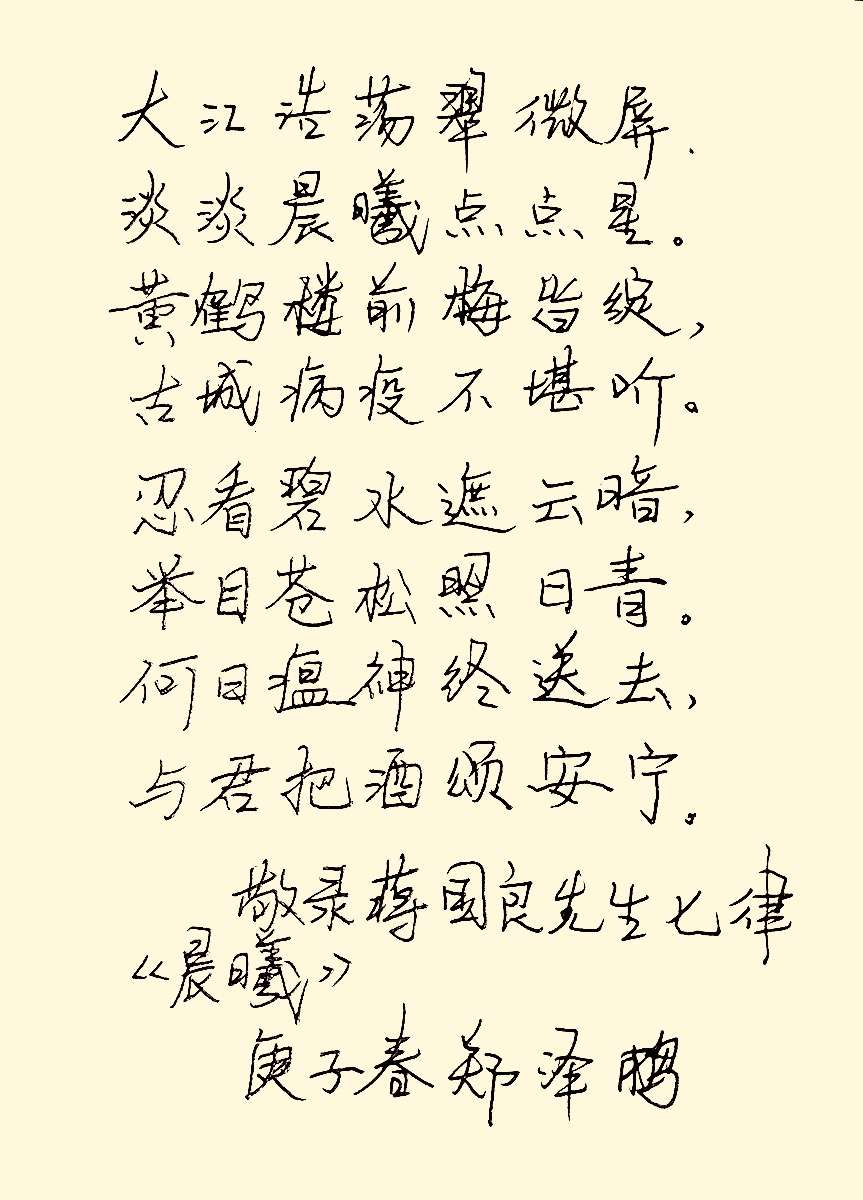 大江浩荡翠微屏.
淡淡晨曦点点星。
黄鹤楼前梅皆绽,
古城病疫不堪听。
忍看碧水遮云暗,
举目苍松照日青。
何日瘟神终送去,
与君把酒颂安宁。
敬录蒋国良先生七律
《晨曦》
庚子春郑泽鹏